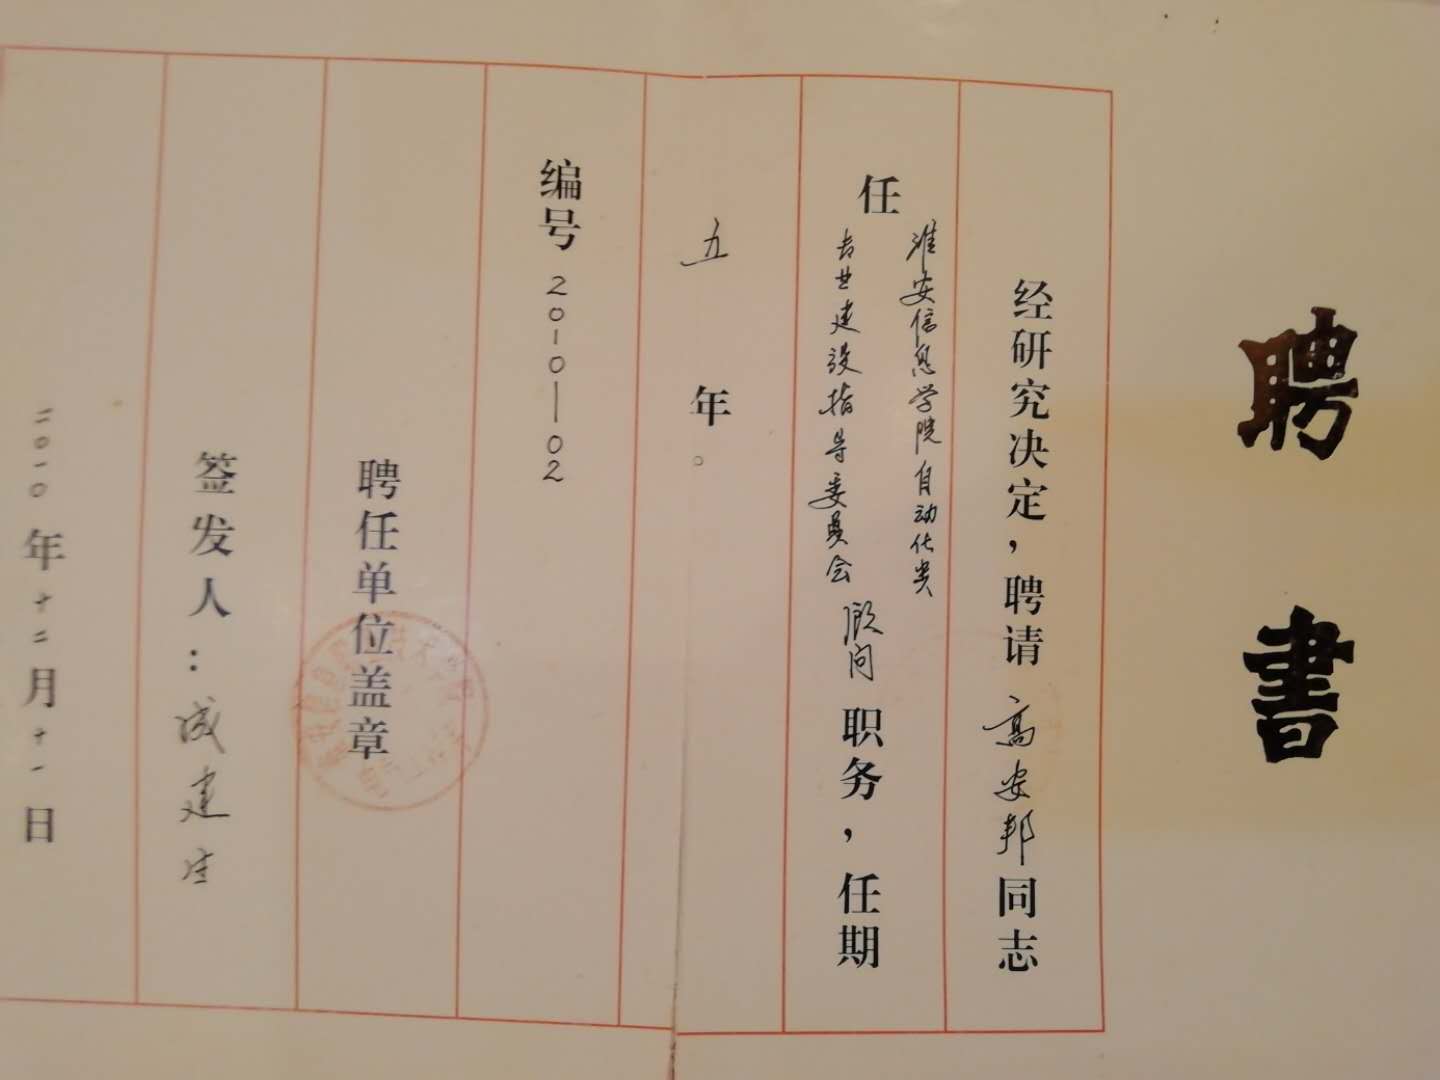 聘書
经研究决定，聘请高安邦同志
任淮安信息学院自动化类
专业建设指导委员会顾问职务，任期
五年。
编号2010—02
聘任单位盖章
签发人：成建生
二〇一〇年十二月十一日